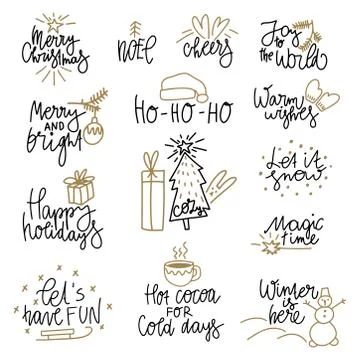 Merry
Christmas
NOEL
cheers
Joy
to
the World
Merry
AND
bright
HO-HO-HO
Warm
wishes
Let it
snow
cozy
Happy
holidays
Magic
time
Let's
have FUN
Hot cocoa
FOR
Cold days
Winter
is
here